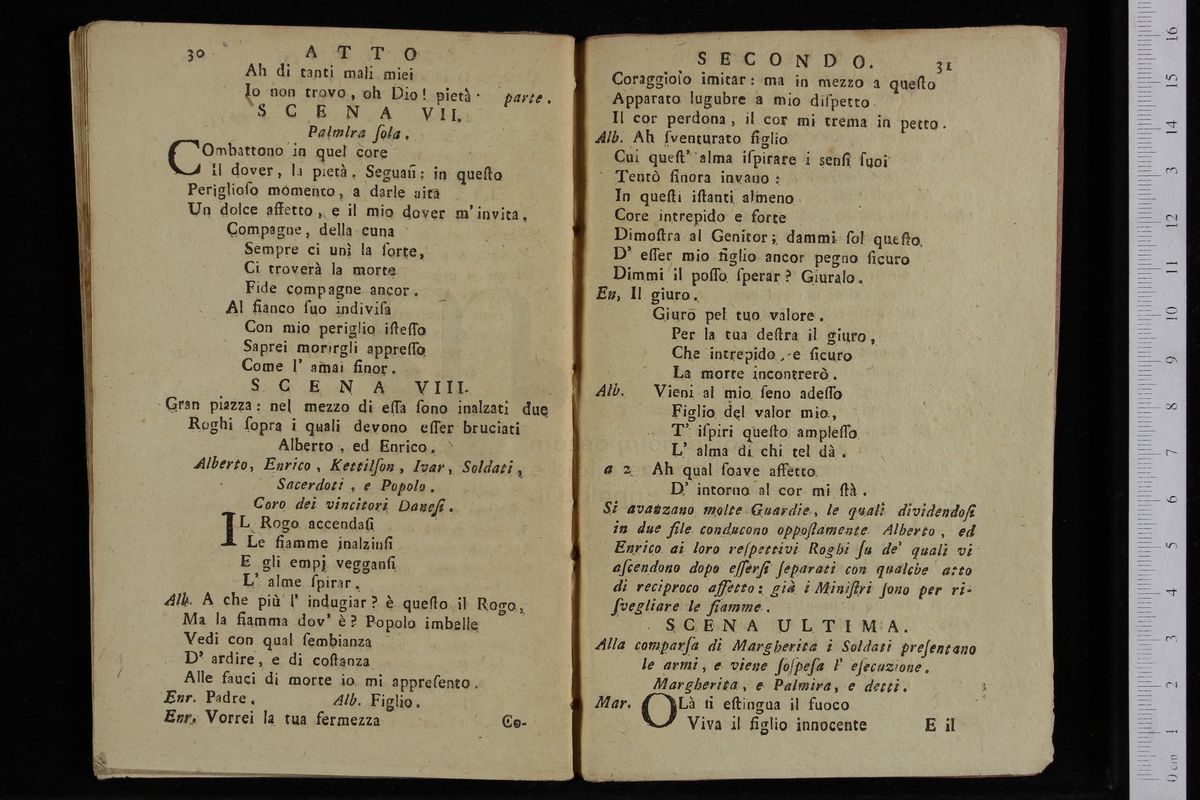 30 ATTO
Ah di tanti mali miei
Io non trovo, oh Dio! pietà. parte.
SCENA VII.
Palmira ſola.
COmbattono in quel core
Il dover, la pietà. Seguaſi: in queſto
Periglioſo momento, a darle aita
Un dolce affetto, e il mio dover m'invita.
Compagne, della cuna
Sempre ci unì la ſorte,
Ci troverà la morte
Fide compagne ancor.
Al fianco ſuo indiviſa
Con mio periglio iſteſſo
Saprei morirgli appreſſo
Come l' amai ſinor.
SCENA VIII.
Gran piazza: nel mezzo di eſſa ſono inalzati due
Roghi ſopra i quali devono eſſer bruciati
Alberto, ed Enrico.
Alberto, Enrico, Kettilſon, Ivar, Soldati,
Sacerdoti, e Popolo.
Coro dei vincitori Daneſi.
IL Rogo accendaſi
Le fiamme inalzinſi
E gli empj vegganſi
L' alme ſpirar.
Alb. A che più l' indugiar? è queſto il Rogo,
Ma la fiamma dov' è? Popolo imbelle
Vedi con qual ſembianza
D' ardire, e di coſtanza
Alle fauci di morte io mi appreſento.
Enr. Padre. Alb. Figlio.
Enr. Vorrei la tua fermezza
Co-
SECONDO. 31
Coraggioſo imitar: ma in mezzo a queſto
Apparato lugubre a mio diſpetto
Il cor perdona, il cor mi trema in petto.
Alb. Ah ſventurato figlio
Cui queſt' alma iſpirare i ſenſi ſuoi
Tentò ſinora invano:
In queſti iſtanti almeno
Core intrepido e forte
Dimoſtra al Genitor; dammi ſol queſto,
D' eſſer mio figlio ancor pegno ſicuro
Dimmi il poſſo ſperar? Giuralo.
En, Il giuro.
Giuro pel tuo valore.
Per la tua deſtra il giuro,
Che intrepido, e ſicuro
La morte incontrerò.
Alb. Vieni al mio ſeno adeſſo
Figlio del valor mio,
T' iſpiri queſto ampleſſo
L' alma di chi tel dà.
a 2 Ah qual ſoave affetto
D' intorno al cor mi ſtà.
Si avanzano molte Guardie, le quali dividendoſi
in due file conducono oppoſtamente Alberto, ed
Enrico ai loro reſpettivi Roghi ſu de' quali vi
aſcendono dopo eſſerſi ſeparati con qualche atto
di reciproco affetto: già i Miniſtri ſono per ri-
ſvegliare le fiamme.
SCENA ULTIMA.
Alla comparſa di Margherita i Soldati preſentano
le armi, e viene ſoſpeſa l' eſecuzione.
Margherita, e Palmira, e detti.
Mar. OLà ti eſtingua il fuoco
Viva il figlio innocente
E il
0 cm 1 2 3 4 5 6 7 8 9 10 11 12 13 14 15 16